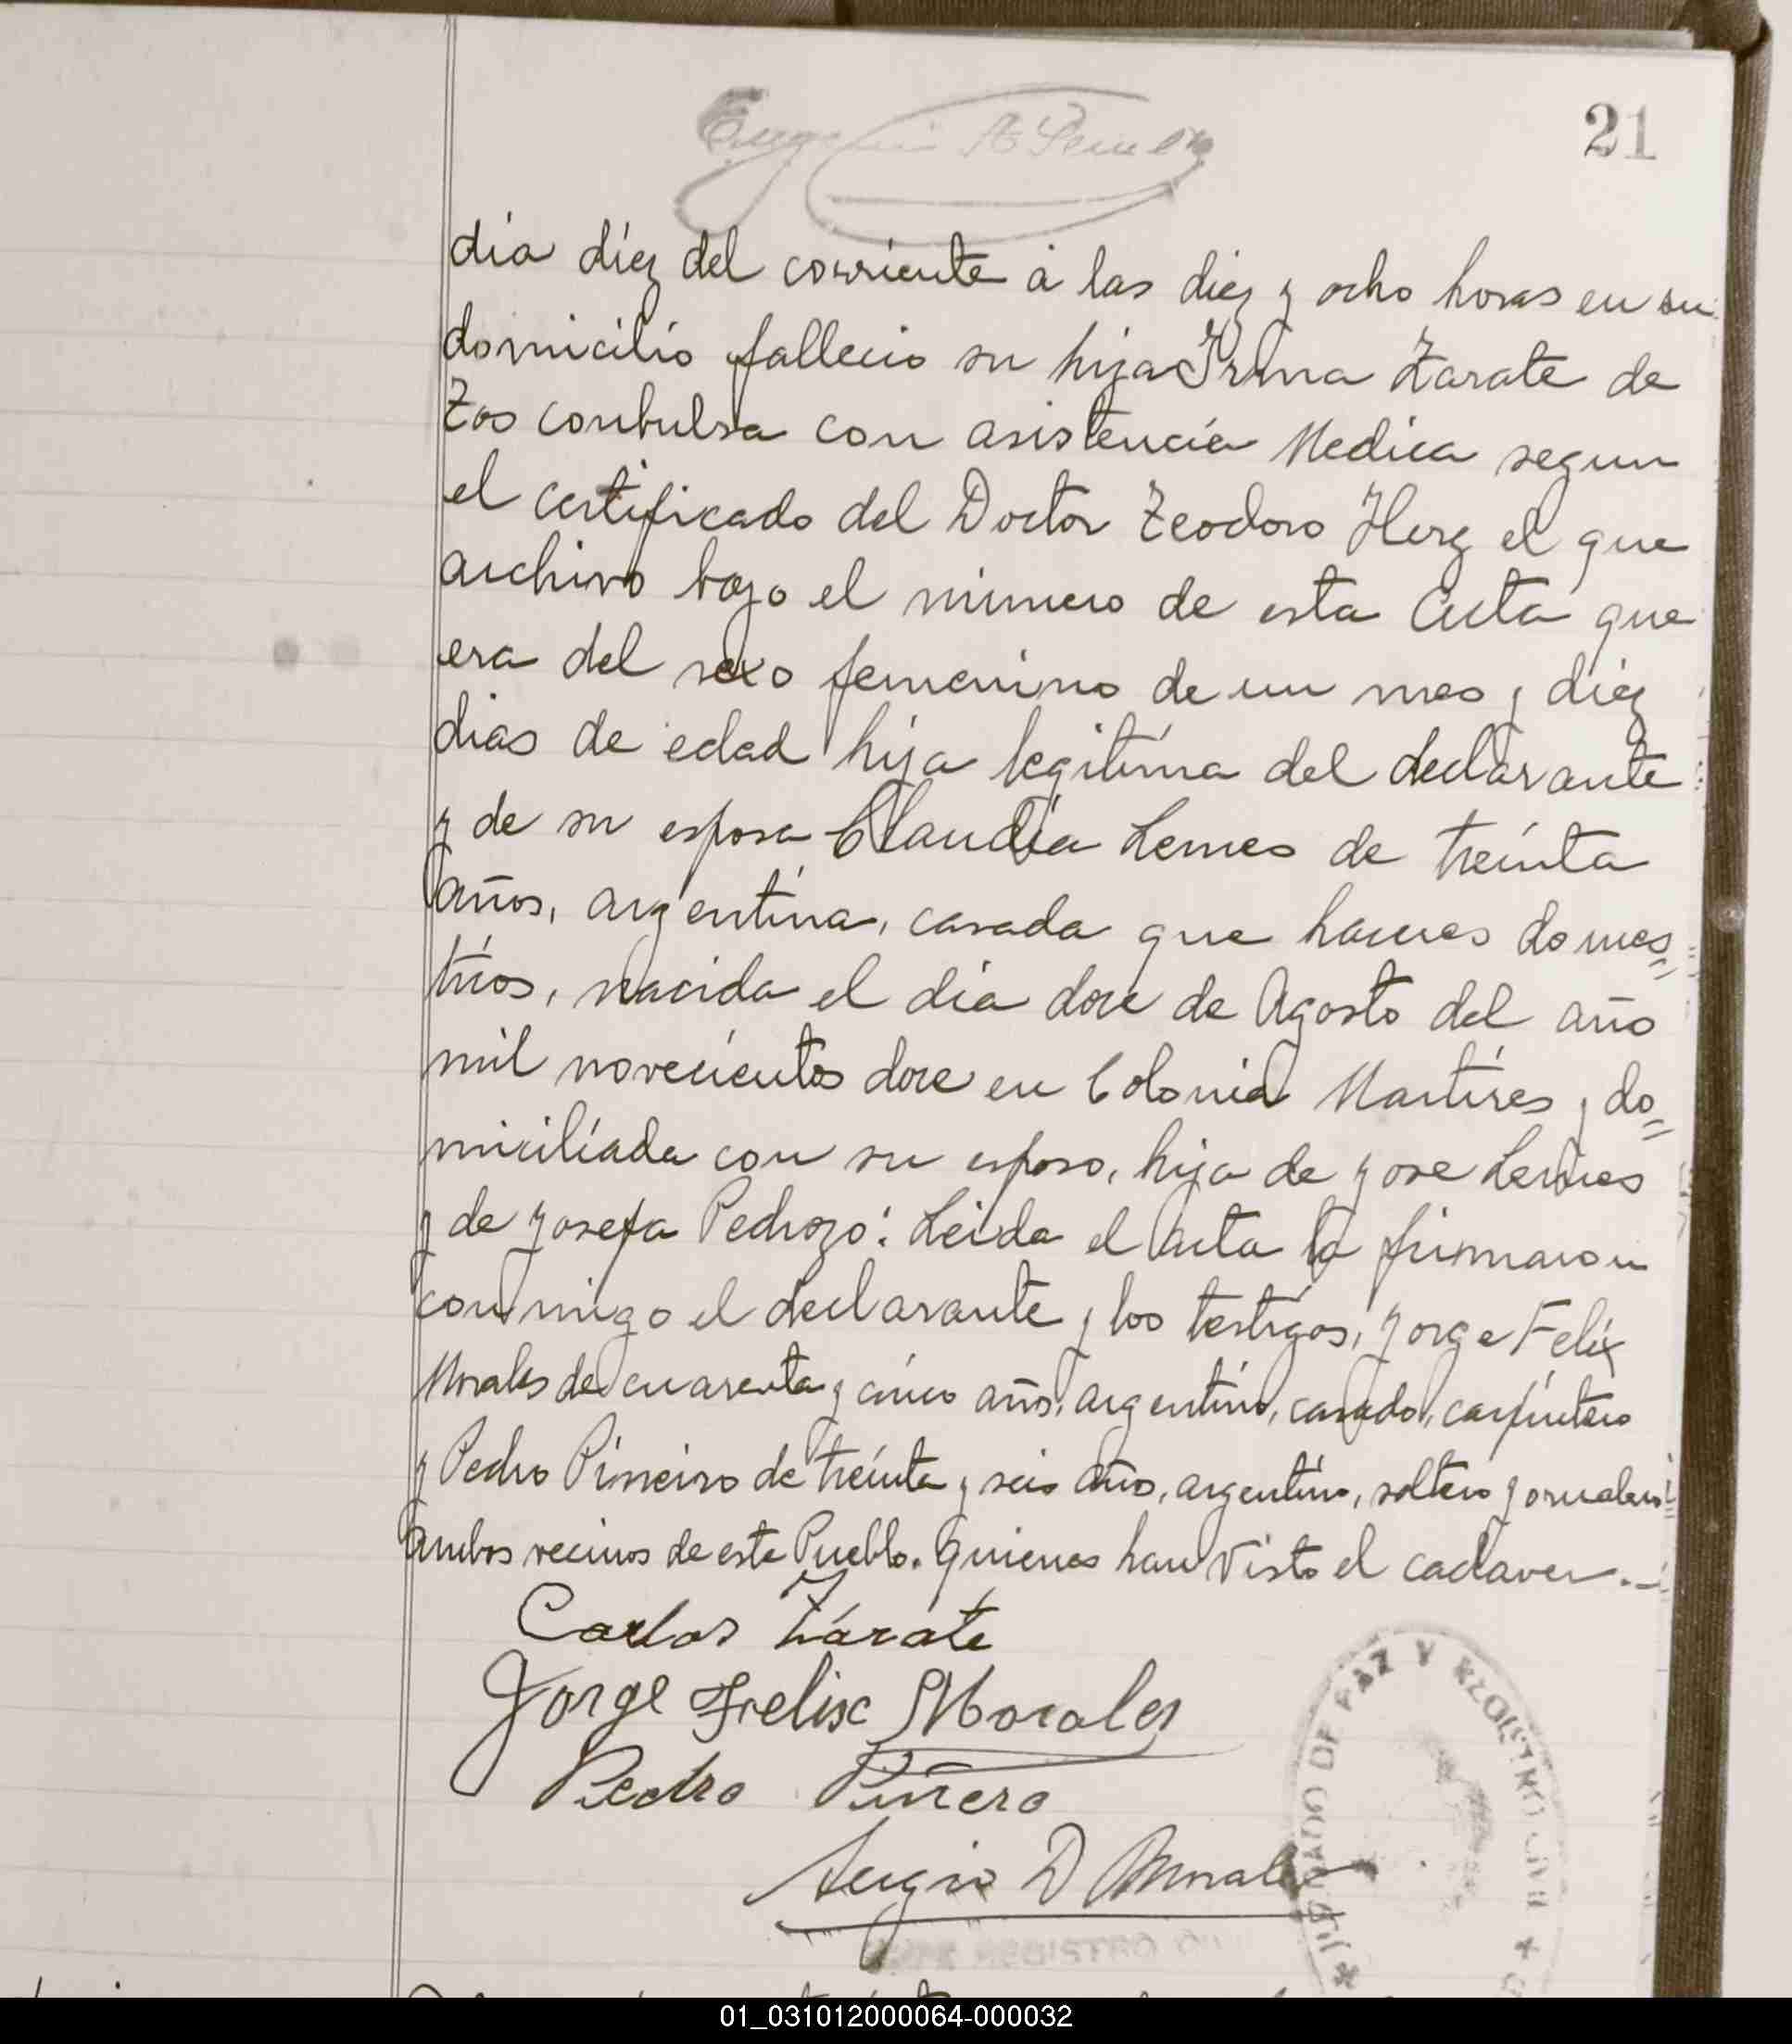 21
día diez del corriente á las diez y ocho horas en su
domicilio fallecio su hija Irma Zarate de
Tos conbulsa con asistencia Medica segun
el certificado del Doctor Teodoro Herz el que
archivo bajo el numero de esta Acta que
era del sexo femenino de un mes y diez
dias de edad hija legitima del declarante
y de su esposa Claudia Lemes de treinta
años, argentina, casada que haceres domes=
ticos, nacida el dia doce de Agosto del año
mil novecientos doce en Colonia Martires y do=
miciliada con su esposo, hija de Jose Lemes
y de Josefa Pedrozo: Leida el Acta la firmaron
conmigo el declarante y los testigos, Jorge Felix
Morales de cuarenta y cinco años, argentino, casado, carpintero
y Pedro Pineiro de treinta y seis años, argentino, soltero jornalero
ambos vecinos de este Pueblo. Quienes han Visto el cadaver.-
Carlos Zárate
Jorge Felix Morales
Pedro Piñero
Sergio D Morales
JUZGADO DE PAZ Y REGISTRO CIVIL
01_031012000064-000032